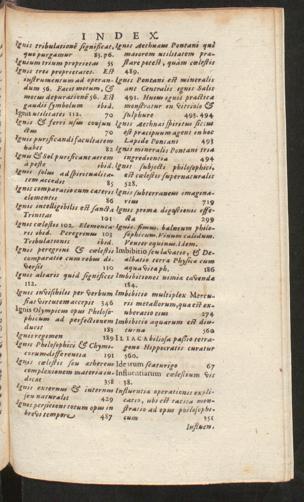 INDEX
Ignis tribulationẽ significat,
quo purgamur 83. 96.
Ignium trium proprietas 55
Ignis tres proprietates. Est
instrumentum ad operan-
dum 56. Facit motum, &
motus depurationẽ 56. Est
gaudij symbolum ibid.
Ignis utilitates 112. 70
Ignis & ferri usus conjun
ctus 70
Ignis purificandi facultatem
habet 82
Ignis & Sol purificant aerem
à peste ibid.
Ignis solus ad spiritualita-
tem accedit 85
Ignis comparatio cum cæteris
elementis 86
Ignis intelligibilis est sancta
Trinitas 101
Ignis cœlestis 102. Elementa-
ris ibid. Peregrinus 103
Tribulationis ibid.
Ignis peregrini & cœlestis
comparatio cum rebus di-
versis 110
Ignis altaris quid significet
112.
Ignis invisibilis per verbum
suas virtutem accepit 346
Ignis Olympicus opus Philoso-
phicum ad perfectionem
ducit 183
Ignis regimen 189
Ignis Philosophici & Chymi-
corum differentia 191
Ignis cœlestis seu æthereus
complexionem materia in-
dicat 358
Ignis externus & internus
jeu naturalis 429
Ignis persicens totum opus in
brevi tempore 487
Ignis Aethnæus Pontani quâ
majorem utilitatem præ-
stare potest, quàm cœlestis
489.
Ignis Pontani est mineralis
ante Centralis ignis Salis
491. Hujus ignis practica
monstratur in Vitriolo &
sulphure 493. 494
Ignis Aethnæi spiritus siccus
est præcipuum agens in hoc
Lapide Pontani 493
Ignis mineralis Pontani tria
ingredientia 494
Ignis subjecti philosophici,
est cœlestis supernaturalis
528.
Ignis subterraneus imagina-
rius 719
Ignis prima digestionis effe-
cta 299
Ignis. fimus. balneum philo-
sophicum. Vinum calidum.
Venter equinus. idem.
Imbibitio seu lavatio, & De-
albatio terræ Physicæ cum
aqua vitæ ph. 186
Imbibitiones nimia cavenda
184.
Imbibitio multiplex Mercu-
rii metallorum, qua est ex-
uberatio eius 274
Imbibitio aquarum est diu-
turna 560
ILIACA biliosa passio tetra-
genus Hippocratis curatur
560.
Idearum scaturigo 67
Influentiarum cœlestium vis
38.
Influentia operationis expli-
catio, ubi est tacita mon-
stratio ad opus philosophi-
cum
Influen.